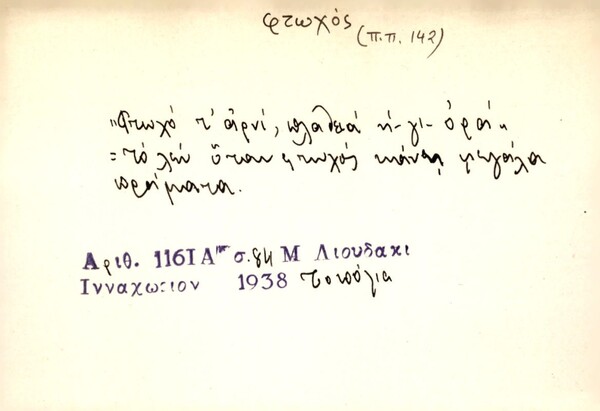 φτωχός
(π.π. 142)
"Φτωχό τ' ἀρνί, πλαθειά ἡ-γι-ὀρά"
=τό λέν ὅταν φτωχός κάνει μεγάλα
πράματα.
Αριθ. 1161 Α σ. 84 Μ Λιουδακι
Ινναχωριον 1938 Τοπόλια